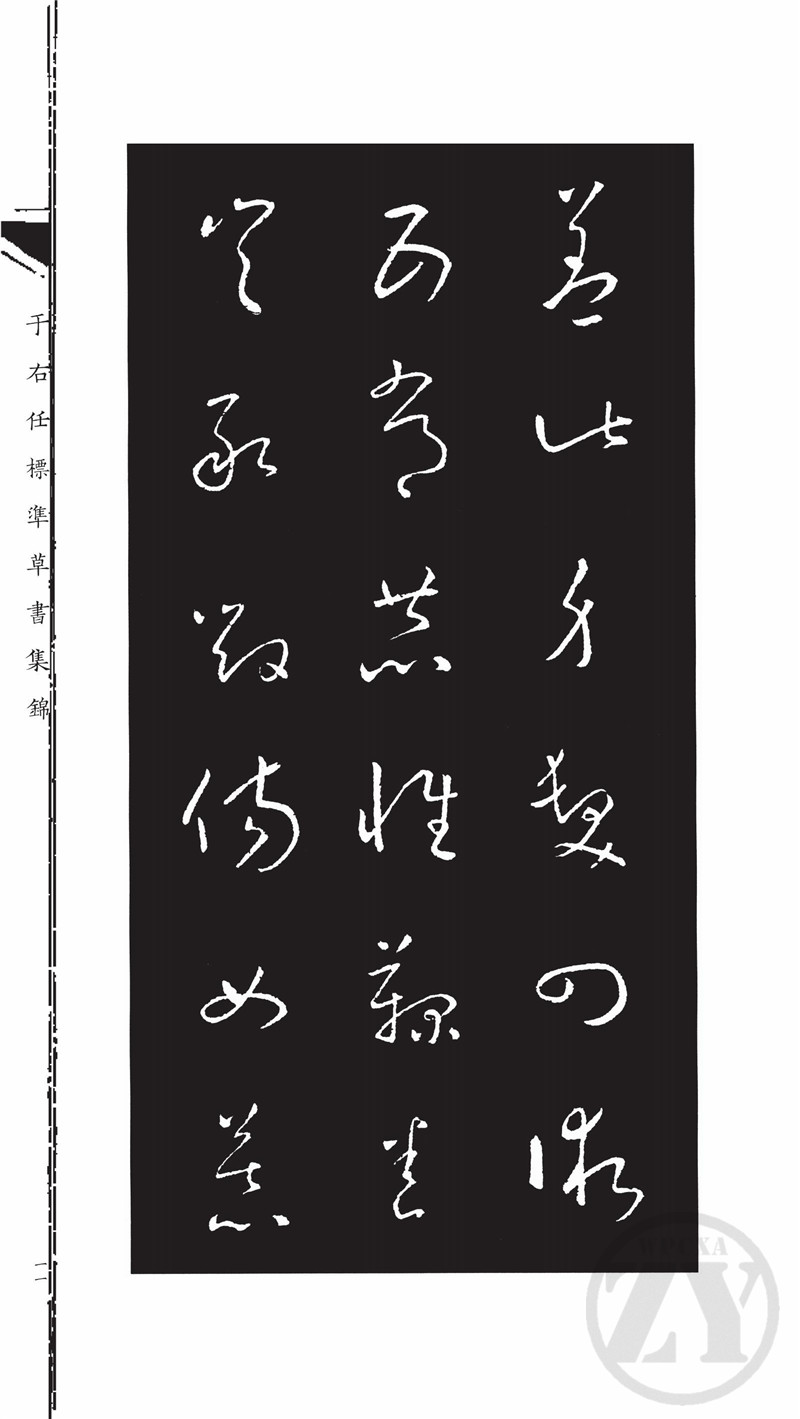 蓋此身髮四
五常恭惟鞠養
豈敢毀傷女慕
于右任標準草書集錦
一一
WPCXA
ZY